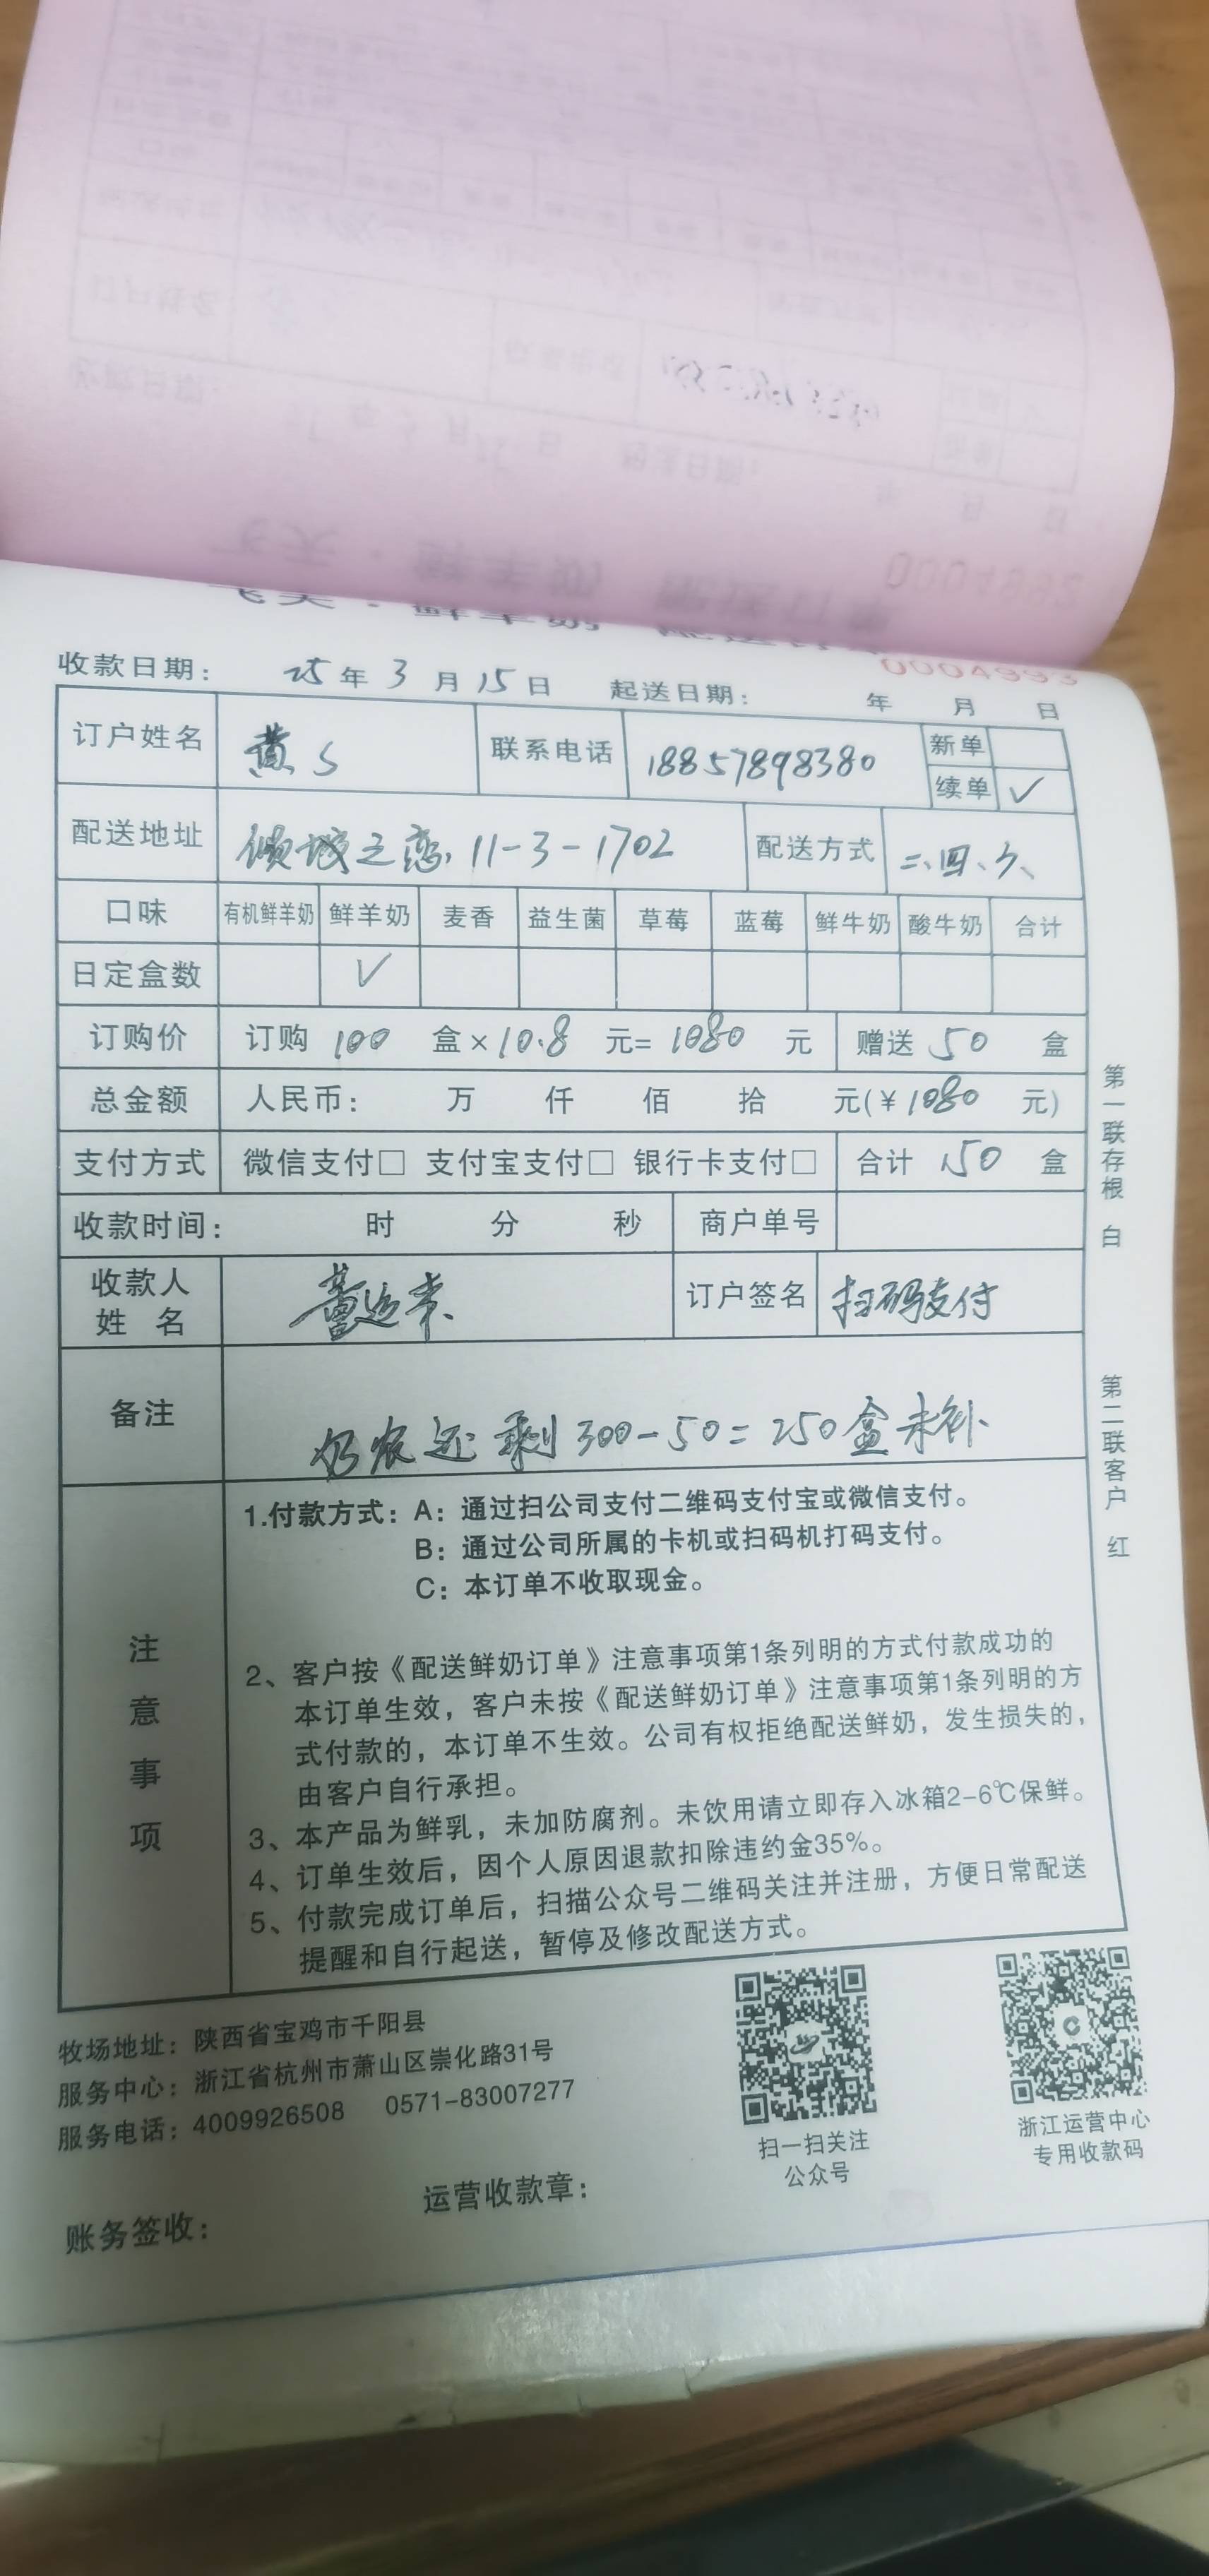 飞天·鲜羊奶 配送订单
0004993
收款日期： 25年3月15日 起送日期： 年 月 日
订户姓名 黄S 联系电话 18857898380 新单
续单 ✓
配送地址 倾城之恋，11-3-1702 配送方式 二、四、六、
口味 有机鲜羊奶 鲜羊奶 麦香 益生菌 草莓 蓝莓 鲜牛奶 酸牛奶 合计
日定盒数 ✓
订购价 订购 100 盒×10.8 元=1080 元 赠送 50 盒
总金额 人民币： 万 仟 佰 拾 元(￥1080 元)
支付方式 微信支付□ 支付宝支付□ 银行卡支付□ 合计 150 盒
收款时间： 时 分 秒 商户单号
收款人
姓 名 订户签名 扫码支付
备注 还剩300-50=250盒未补
注意事项
1.付款方式：A：通过扫公司支付二维码支付宝或微信支付。
B：通过公司所属的卡机或扫码机打码支付。
C：本订单不收取现金。
2、客户按《配送鲜奶订单》注意事项第1条列明的方式付款成功的
本订单生效，客户未按《配送鲜奶订单》注意事项第1条列明的方
式付款的，本订单不生效。公司有权拒绝配送鲜奶，发生损失的，
由客户自行承担。
3、本产品为鲜乳，未加防腐剂。未饮用请立即存入冰箱2-6℃保鲜。
4、订单生效后，因个人原因退款扣除违约金35%。
5、付款完成订单后，扫描公众号二维码关注并注册，方便日常配送
提醒和自行起送，暂停及修改配送方式。
第一联存根 白
第二联客户 红
牧场地址：陕西省宝鸡市千阳县
服务中心：浙江省杭州市萧山区崇化路31号
服务电话：4009926508 0571-83007277
扫一扫关注
公众号
浙江运营中心
专用收款码
运营收款章：
账务签收：